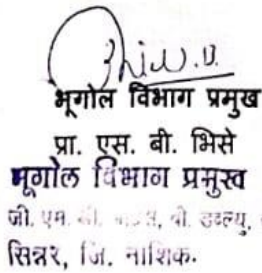 भूगोल विभाग प्रमुख
प्रा. एस. बी. भिसे
भूगोल विभाग प्रमुख
जी. एम. डी. बी. डब्ल्यु.
सिन्नर, जि. नाशिक.